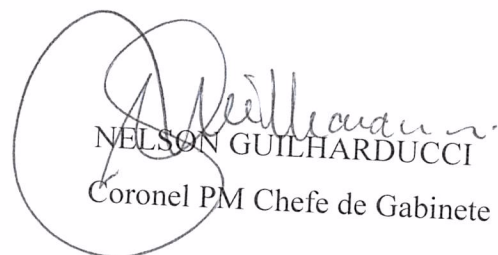 NELSON GUILHARDUCCI
Coronel PM Chefe de Gabinete